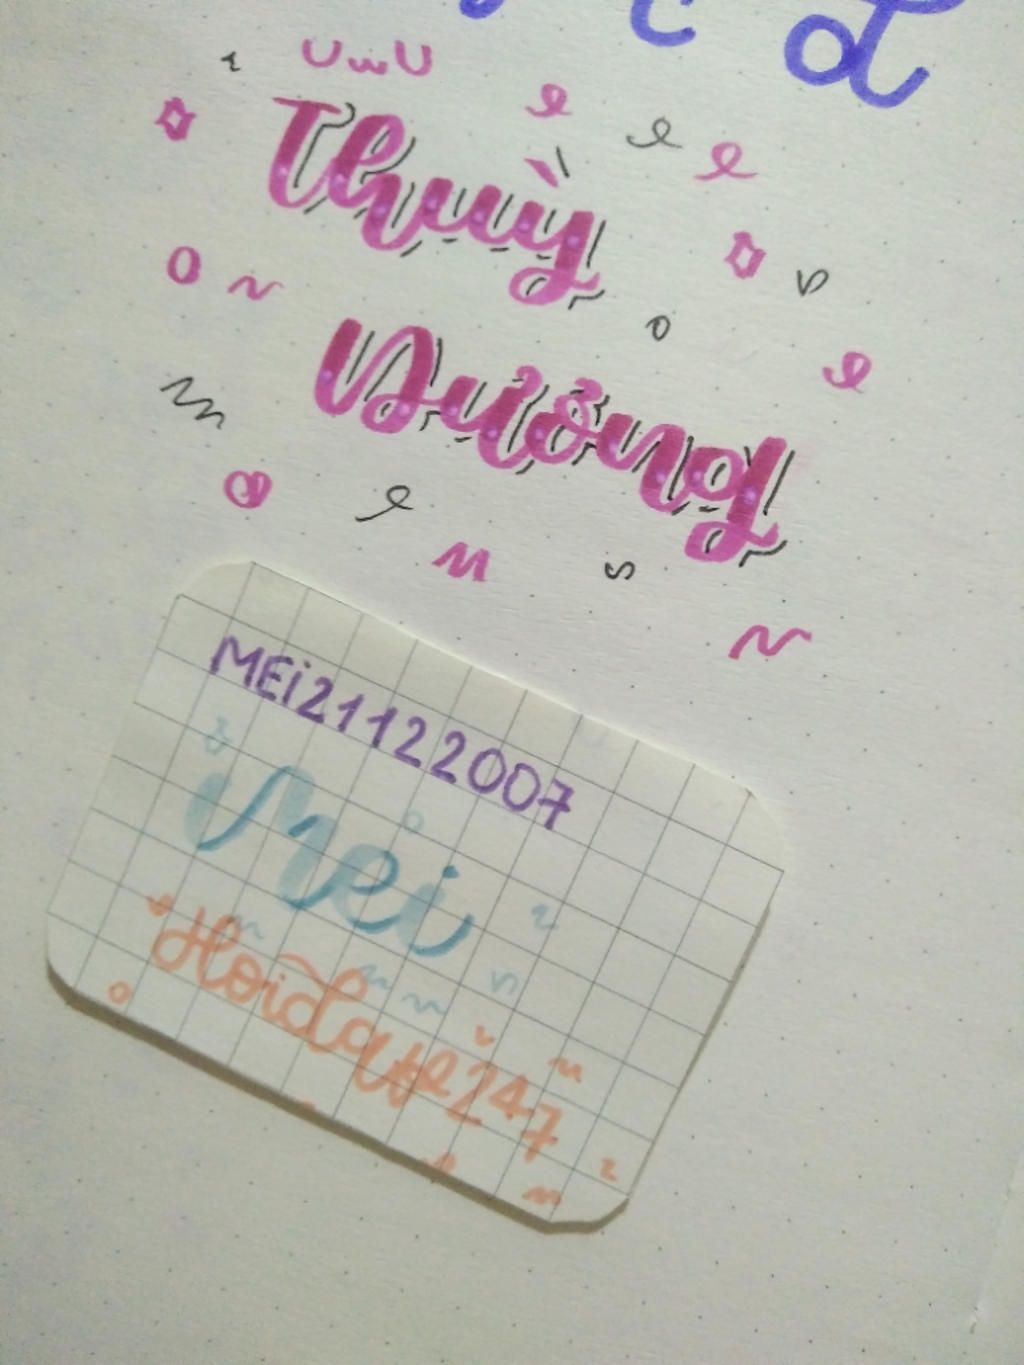 UwU
Thuỳ
Dương
MEi21122007
Mei
Hoidap247